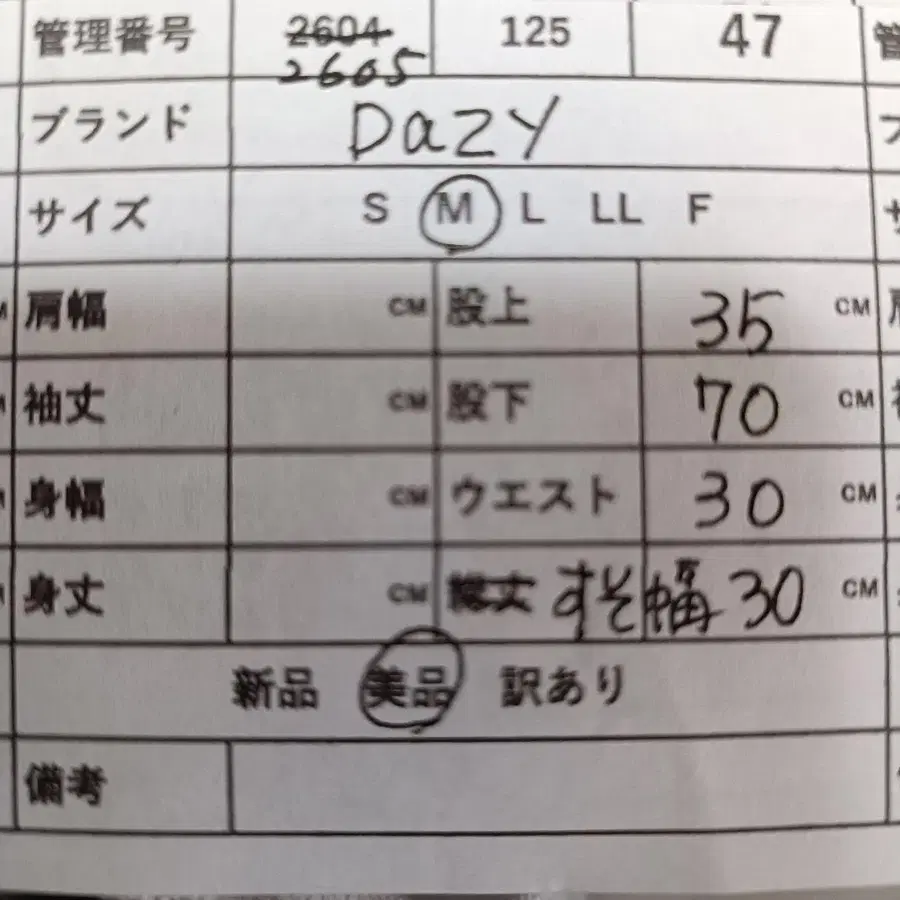 管理番号 2604 125 47
2605
ブランド DazY
サイズ S M L LL F
肩幅 CM 股上 35 CM
袖丈 CM 股下 70 CM
身幅 CM ウエスト 30 CM
身丈 CM 総丈 すそ幅 30 CM
新品 美品 訳あり
備考